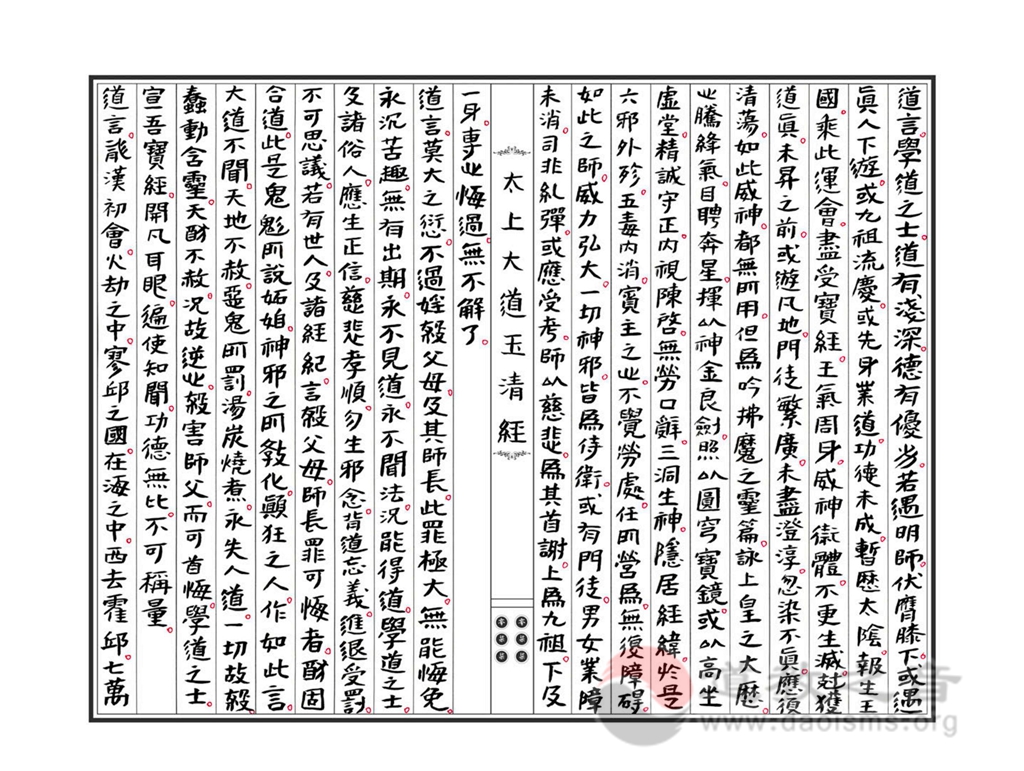 道言學道之士道有淺深德有優劣若遇明師伏膺膝下或遇
真人下遊或九祖流慶或先身業道功德未成暫歷太陰報生王
國乘此運會盡受寶經王氣周身威神衞體不更生滅尅獲
道真未昇之前或遊凡地門徒繁廣未盡澄淳忽染不真應復
清蕩如此威神都無所用但為吟拂魔之靈篇詠上皇之大歷
之騰絳氣目聘奔星揮以神金良劍照以圓穹寶鏡或以高坐
虛堂精誠守正內視陳啓無勞口辭三洞生神隱居經緯於是
六邪外殄五毒內消賓主之世不覺勞處任所營為無復障碍
如此之師威力弘大一切神邪皆為侍衛或有門徒男女業障
未消司非糺彈或應受考師以慈悲為其首謝上為九祖下及
太上大道玉清經
一身專心悔過無不解了
道言莫大之愆不過姪殺父母及其師長此罪極大無能悔免
永沉苦趣無有出期永不見道永不聞法況能得道學道之士
及諸俗人應生正信慈悲孝順勿生邪念背道忘義進退受罰
不可思議若有世人及諸經紀言殺父母師長罪可悔者酧固
合道此是鬼魁所說妬媢神邪之所教化顛狂之人作如此言
大道不聞天地不赦惡鬼所罰湯炭燒煮永失人道一切故殺
蠢動含靈天酧不赦況故逆心殺害師父而可首悔學道之士
宣吾寶經開凡耳眼遍使知聞功德無比不可稱量
道言龍漢初會火劫之中寥邱之國在海之中西去霍邱七萬
道教之音
www.daoisms.org